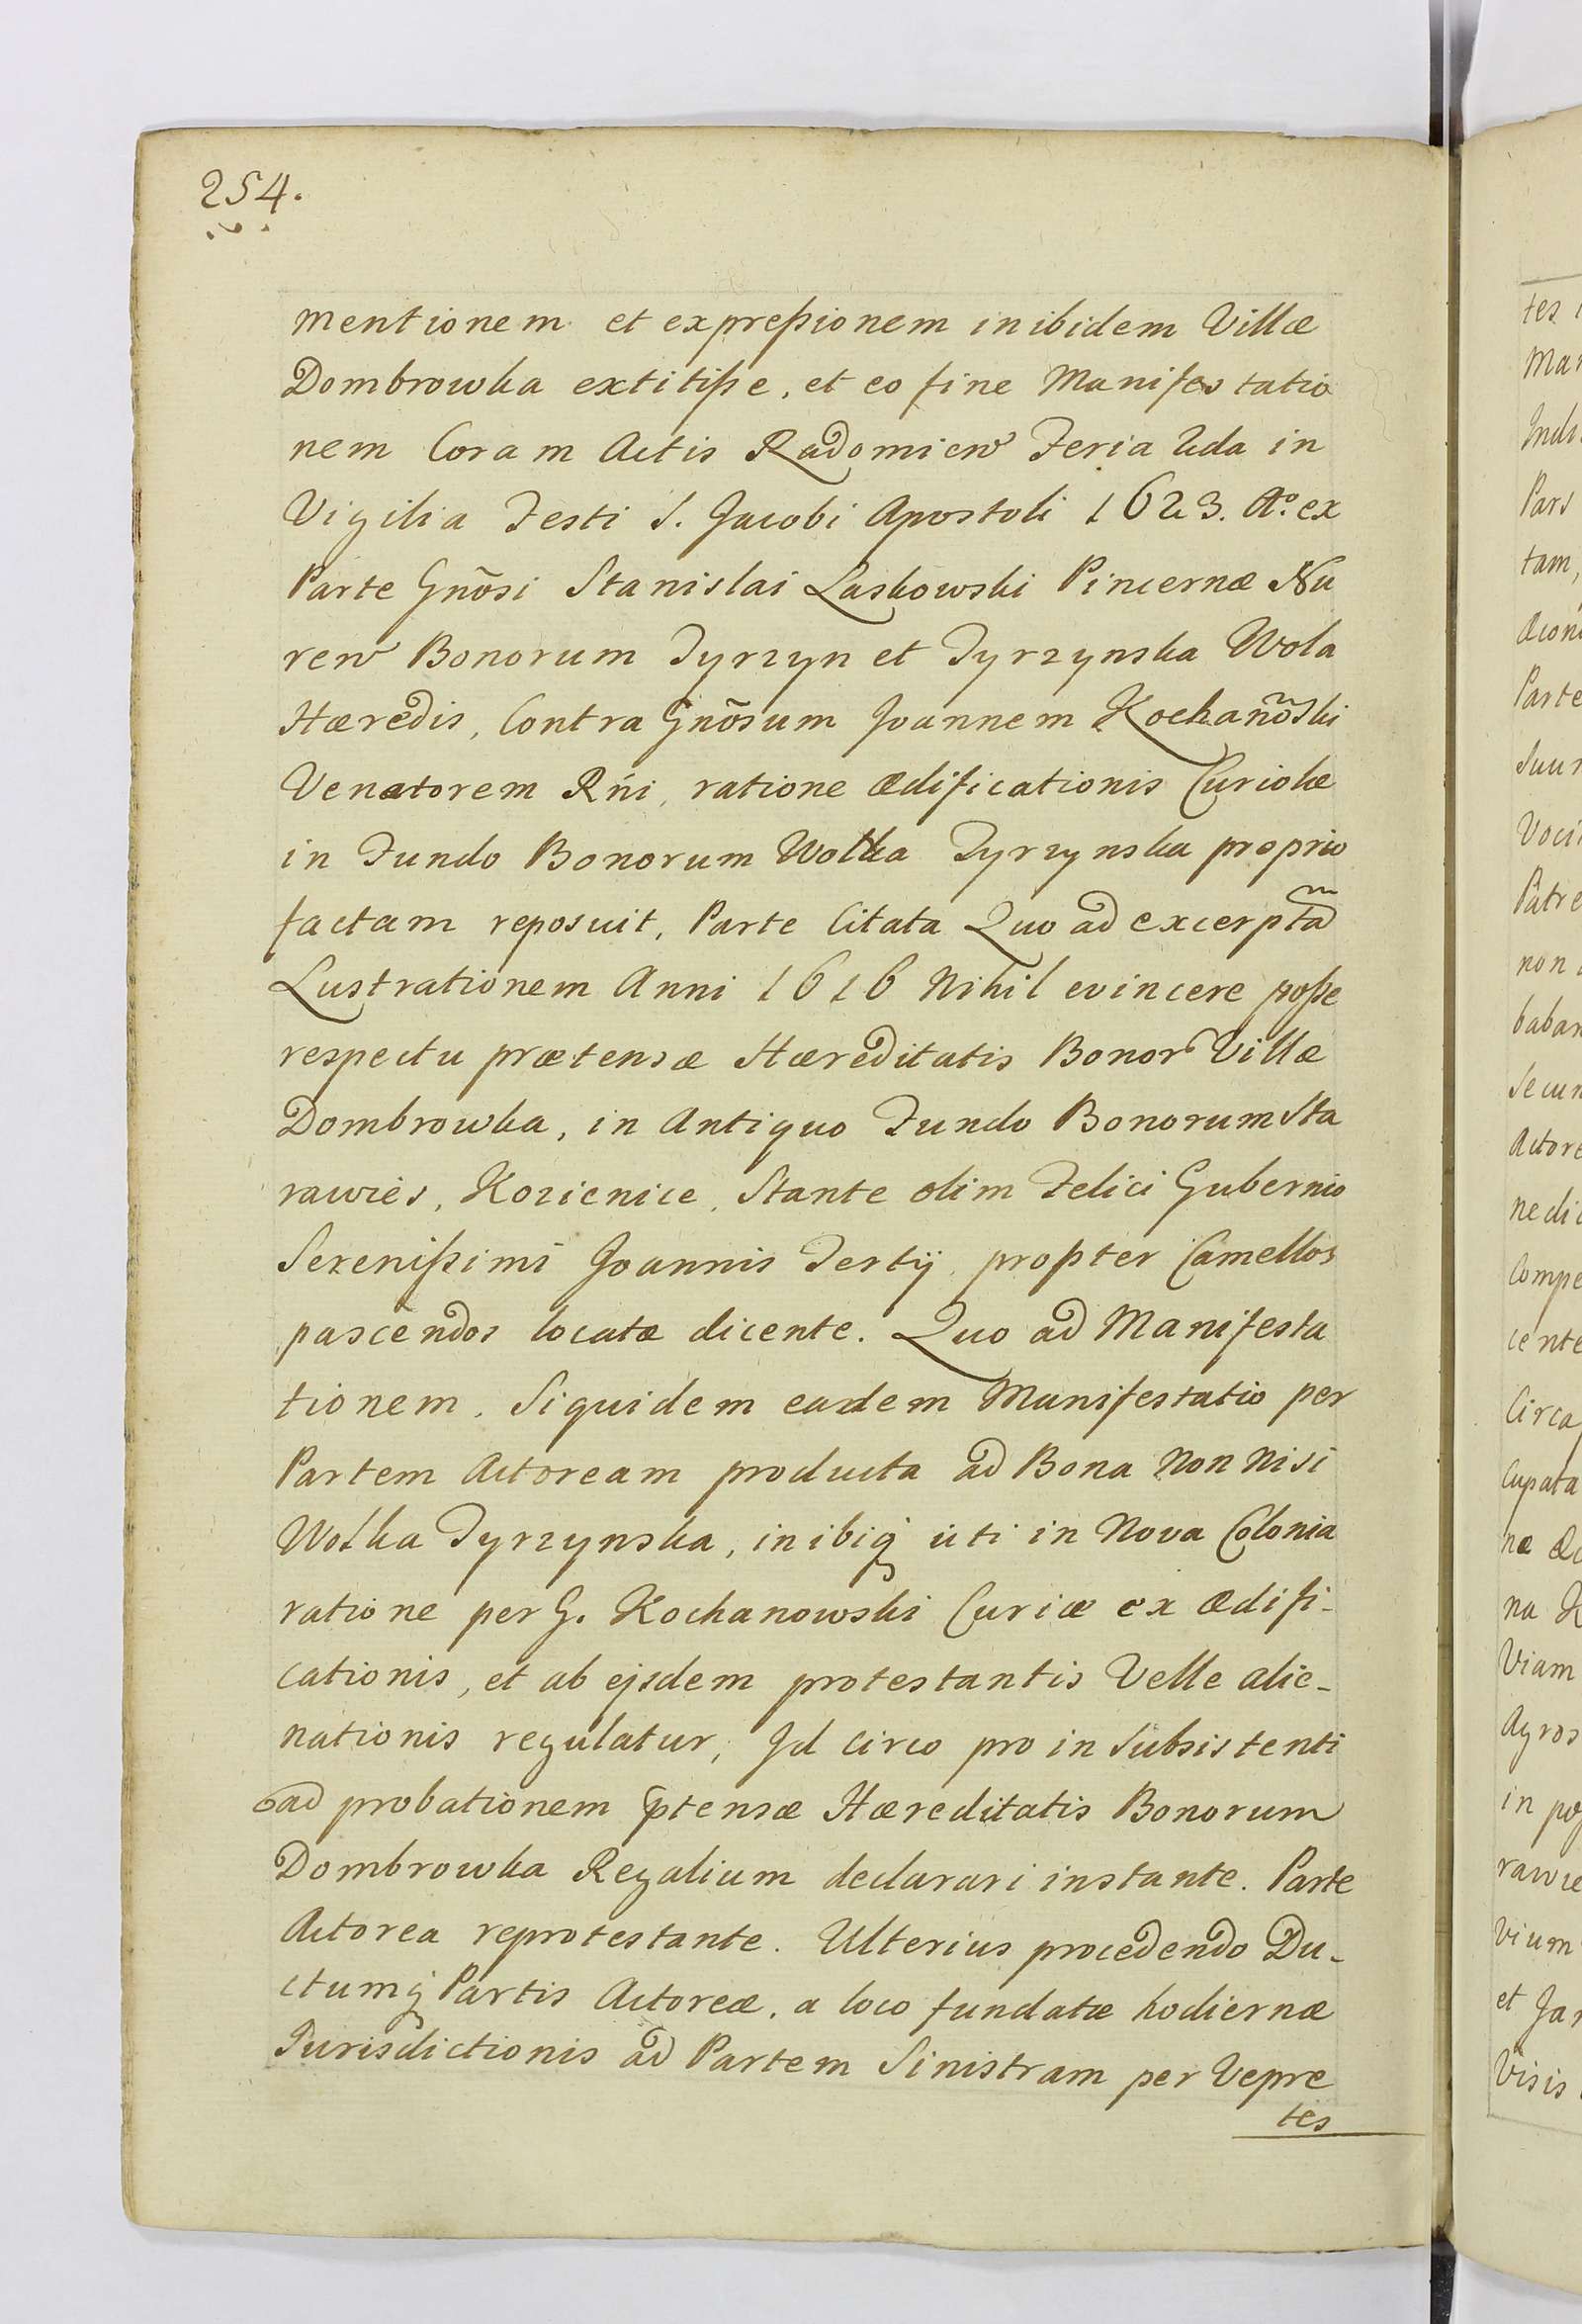 254.
mentionem et expreßionem inibidem Villæ
Dombrowka extitiße, et eo fine Manifestatio
nem Coram Actis Radomien Feria 2da in
Vigilia Festi S. Jacobi Apostoli 1623. Aº. ex
Parte Gnõsi Stanislai Laskowski Pincernæ Nu
ren Bonorum Tyrzyn et Tyrzynska Wola
Hæredis, Contra Gnõsum Joannem Kochañõski
Venatorem Rńi, ratione ædificationis Curiolæ
in Fundo Bonorum Wolka Tyrzynska proprio
factam reposuit, Parte Citata Quo ad excerptã
Lustrationem Anni 1616 Nihil evincere poße
respectu prætensæ Hæreditatis Bonor Villæ
Dombrowka, in Antiquo Fundo Bonorum Sta
rawies, Kozienice, Stante olim Felici Gubernio
Serenißimi Joannis Tertij, propter Camellos
pascendos locatæ dicente. Quo ad Manifesta
tionem. Siquidem eadem Manifestatio per
Partem Actoream producta ad Bona Non Nisi
Wolka Tyrzynska, inibiq uti in Nova Colonia
ratione per G. Kochanowski Curiæ ex Ædifi-
cationis, et ab ejsdem protestantis Velle alie-
nationis regulatur, Jd circo pro in Subsistenti
ad probationem ptensæ Hæreditatis Bonorum
Dombrowka Regalium declarari instante. Parte
Actorea reprotestante. Ulterius procedendo Du-
ctumq Partis Actoreæ, a loco fundatæ hodiernæ
Jurisdictionis ad Partem Sinistram per Vepre
tes
tes
Mar
Pars
tam,
Parte
Pátre
non
baban
Secun
Actore
nedic
Compe
cente
Circa
cupata
na K
Viam
Agros
in po
rawie
vium
et Jan
Visis